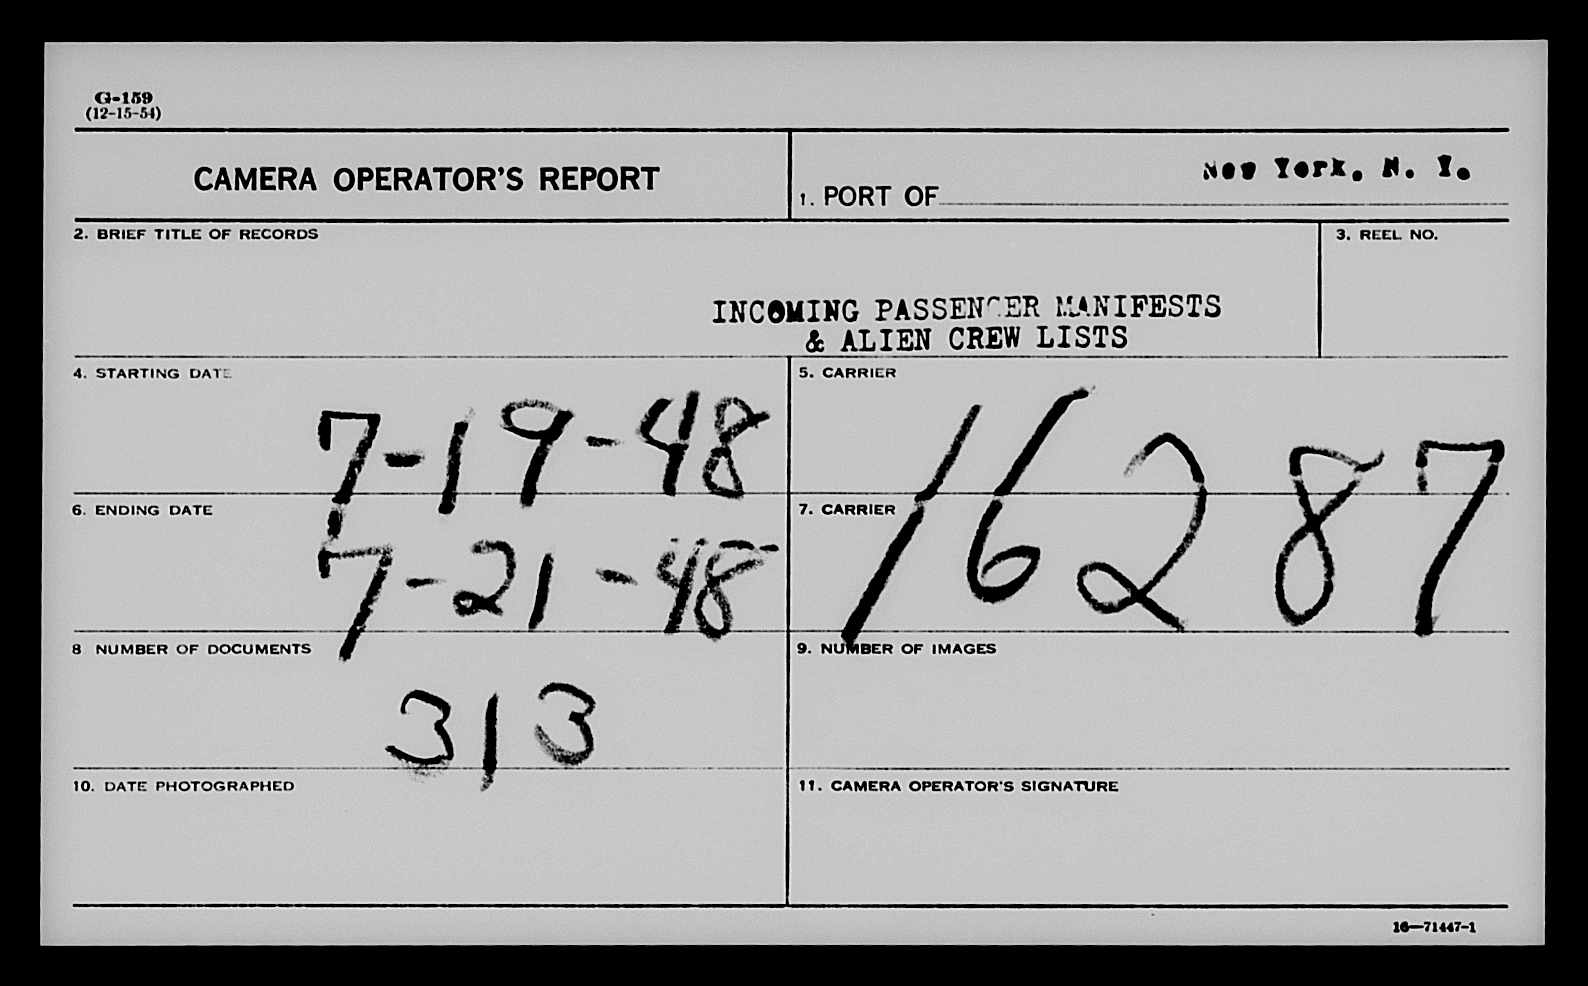 G-159
(12-15-54)
CAMERA OPERATOR'S REPORT
1. PORT OF New York, N. Y.
2. BRIEF TITLE OF RECORDS
3. REEL NO.
INCOMING PASSENGER MANIFESTS
& ALIEN CREW LISTS
4. STARTING DATE
5. CARRIER
7-19-48
16287
6. ENDING DATE
7. CARRIER
7-21-48
8 NUMBER OF DOCUMENTS
9. NUMBER OF IMAGES
313
10. DATE PHOTOGRAPHED
11. CAMERA OPERATOR'S SIGNATURE
16—71447-1